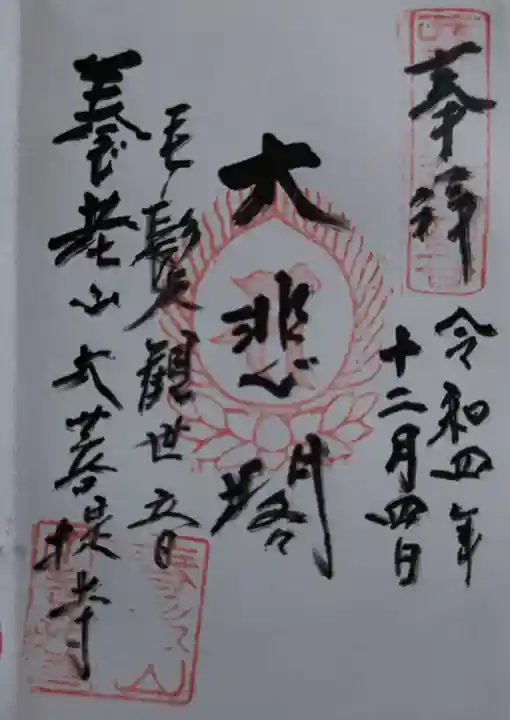 奉拝
令和四年
十二月四日
大悲閣
毛髪観世音
養老山大菩提寺